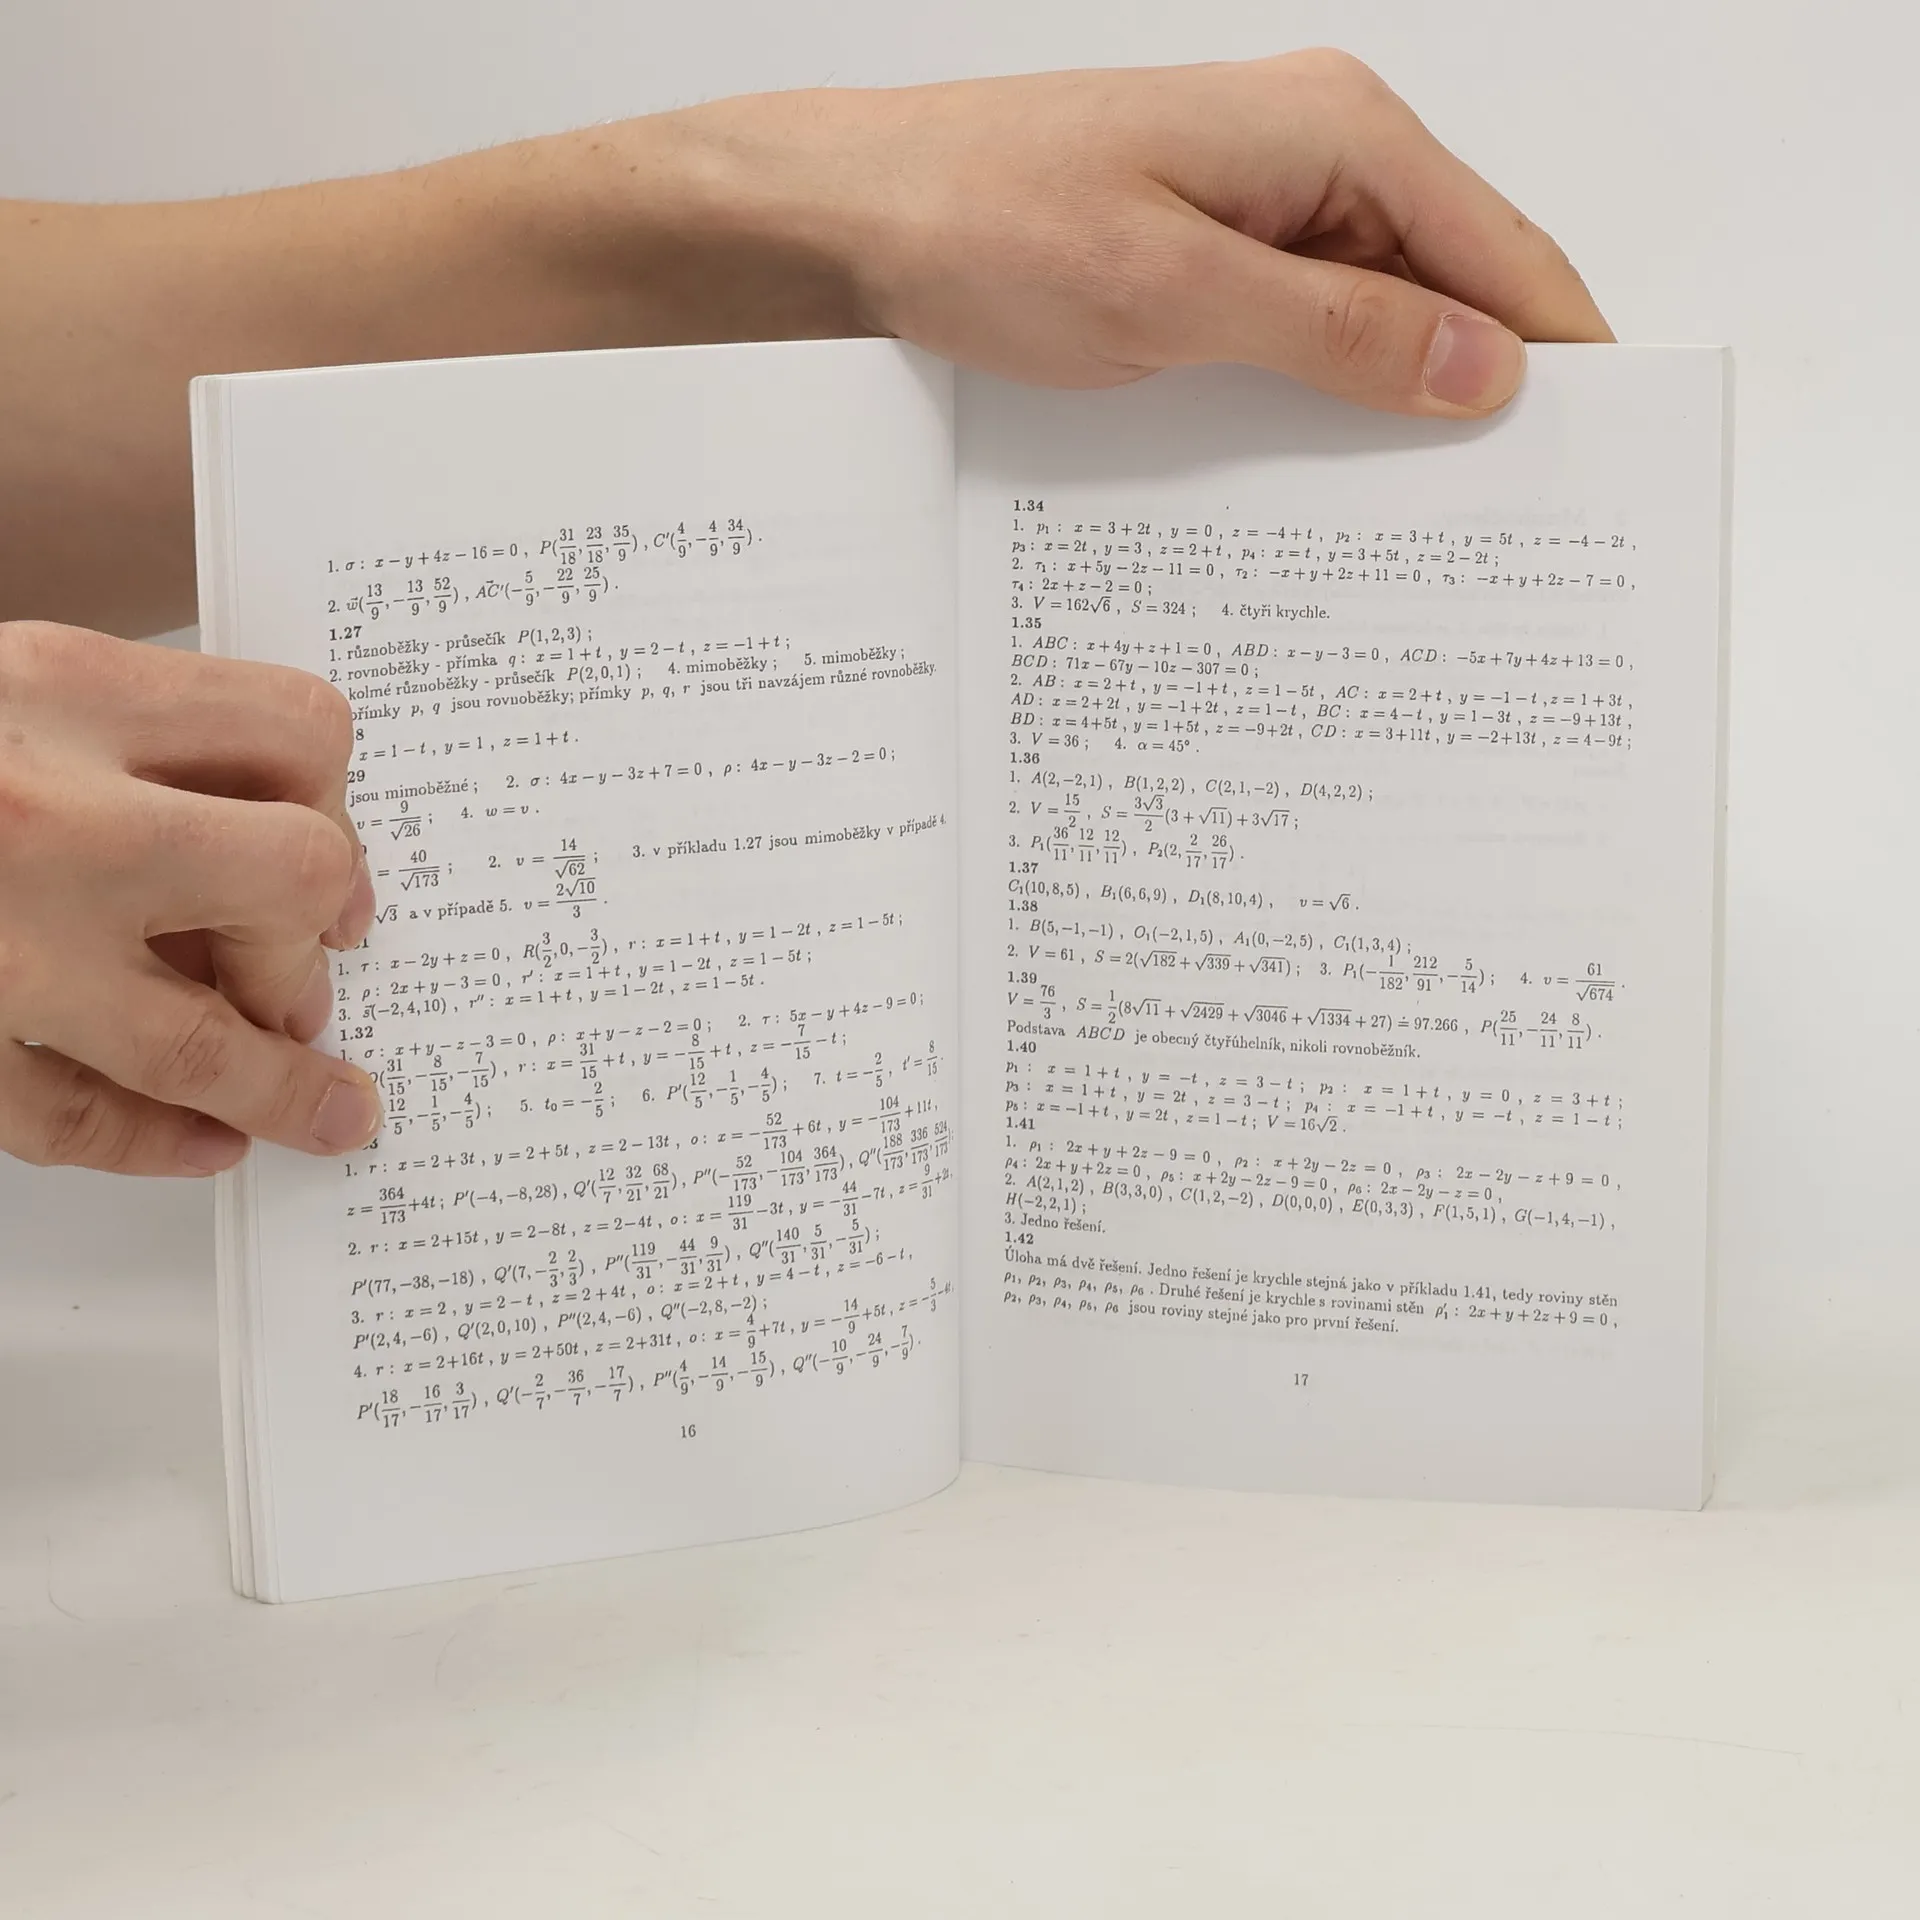 1. σ : x − y + 4z − 16 = 0 , P(31/18, 23/18, 35/9) , C′(4/9, −4/9, 34/9) .
2. w⃗(13/9, −13/9, 52/9) , AC⃗′(−5/9, −22/9, 25/9) .
1.27
1. různoběžky - průsečík P(1,2,3) ;
2. rovnoběžky - přímka q : x = 1 + t , y = 2 − t , z = −1 + t ;
kolmé různoběžky - průsečík P(2,0,1) ; 4. mimoběžky ; 5. mimoběžky ;
přímky p, q jsou rovnoběžky; přímky p, q, r jsou tři navzájem různé rovnoběžky.
8
x = 1 − t , y = 1 , z = 1 + t .
29
jsou mimoběžné ; 2. σ : 4x − y − 3z + 7 = 0 , ρ : 4x − y − 3z − 2 = 0 ;
v = 9/√26 ; 4. w = v .
= 40/√173 ; 2. v = 14/√62 ; 3. v příkladu 1.27 jsou mimoběžky v případě 4.
√3 a v případě 5. v = 2√10/3 .
1
1. τ : x − 2y + z = 0 , R(3/2, 0, −3/2) , r : x = 1 + t , y = 1 − 2t , z = 1 − 5t ;
2. ρ : 2x + y − 3 = 0 , r′ : x = 1 + t , y = 1 − 2t , z = 1 − 5t ;
3. s⃗(−2,4,10) , r″ : x = 1 + t , y = 1 − 2t , z = 1 − 5t .
1.32
1. σ : x + y − z − 3 = 0 , ρ : x + y − z − 2 = 0 ; 2. τ : 5x − y + 4z − 9 = 0 ;
(31/15, −8/15, −7/15) , r : x = 31/15 + t , y = −8/15 + t , z = −7/15 − t ;
12/5, −1/5, −4/5) ; 5. t₀ = −2/5 ; 6. P′(12/5, −1/5, −4/5) ; 7. t = −2/5 , t′ = 8/15 .
3
1. r : x = 2 + 3t , y = 2 + 5t , z = 2 − 13t , o : x = −52/173 + 6t , y = −104/173 + 11t ,
z = 364/173 + 4t ; P′(−4,−8,28) , Q′(12/7, 32/21, 68/21) , P″(−52/173, −104/173, 364/173) , Q″(188/173, 336/173, 524/173) ;
2. r : x = 2+15t , y = 2−8t , z = 2−4t , o : x = 119/31 − 3t , y = −44/31 − 7t , z = 9/31 + 2t ,
P′(77,−38,−18) , Q′(7, −2/3, 2/3) , P″(119/31, −44/31, 9/31) , Q″(140/31, 5/31, −5/31) ;
3. r : x = 2 , y = 2 − t , z = 2 + 4t , o : x = 2 + t , y = 4 − t , z = −6 − t ,
P′(2,4,−6) , Q′(2,0,10) , P″(2,4,−6) , Q″(−2,8,−2) ;
4. r : x = 2+16t , y = 2+50t , z = 2+31t , o : x = 4/9 + 7t , y = −14/9 + 5t , z = −5/3 − 4t ,
P′(18/17, −16/17, 3/17) , Q′(−2/7, −36/7, −17/7) , P″(4/9, −14/9, −15/9) , Q″(−10/9, −24/9, −7/9) .
16
1.34
1. p₁ : x = 3 + 2t , y = 0 , z = −4 + t , p₂ : x = 3 + t , y = 5t , z = −4 − 2t ,
p₃ : x = 2t , y = 3 , z = 2 + t , p₄ : x = t , y = 3 + 5t , z = 2 − 2t ;
2. τ₁ : x + 5y − 2z − 11 = 0 , τ₂ : −x + y + 2z + 11 = 0 , τ₃ : −x + y + 2z − 7 = 0 ,
τ₄ : 2x + z − 2 = 0 ;
3. V = 162√6 , S = 324 ; 4. čtyři krychle.
1.35
1. ABC : x + 4y + z + 1 = 0 , ABD : x − y − 3 = 0 , ACD : −5x + 7y + 4z + 13 = 0 ,
BCD : 71x − 67y − 10z − 307 = 0 ;
2. AB : x = 2 + t , y = −1 + t , z = 1 − 5t , AC : x = 2 + t , y = −1 − t , z = 1 + 3t ,
AD : x = 2 + 2t , y = −1 + 2t , z = 1 − t , BC : x = 4 − t , y = 1 − 3t , z = −9 + 13t ,
BD : x = 4+5t , y = 1+5t , z = −9+2t , CD : x = 3+11t , y = −2+13t , z = 4−9t ;
3. V = 36 ; 4. α = 45° .
1.36
1. A(2,−2,1) , B(1,2,2) , C(2,1,−2) , D(4,2,2) ;
2. V = 15/2 , S = 3√3/2 (3 + √11) + 3√17 ;
3. P₁(36/11, 12/11, 12/11) , P₂(2, 2/17, 26/17) .
1.37
C₁(10,8,5) , B₁(6,6,9) , D₁(8,10,4) , v = √6 .
1.38
1. B(5,−1,−1) , O₁(−2,1,5) , A₁(0,−2,5) , C₁(1,3,4) ;
2. V = 61 , S = 2(√182 + √339 + √341) ; 3. P₁(−1/182, 212/91, −5/14) ; 4. v = 61/√674 .
1.39
V = 76/3 , S = 1/2(8√11 + √2429 + √3046 + √1334 + 27) ≐ 97.266 , P(25/11, −24/11, 8/11) .
Podstava ABCD je obecný čtyřúhelník, nikoli rovnoběžník.
1.40
p₁ : x = 1 + t , y = −t , z = 3 − t ; p₂ : x = 1 + t , y = 0 , z = 3 + t ;
p₃ : x = 1 + t , y = 2t , z = 3 − t ; p₄ : x = −1 + t , y = −t , z = 1 − t ;
p₅ : x = −1 + t , y = 2t , z = 1 − t ; V = 16√2 .
1.41
1. ρ₁ : 2x + y + 2z − 9 = 0 , ρ₂ : x + 2y − 2z = 0 , ρ₃ : 2x − 2y − z + 9 = 0 ,
ρ₄ : 2x + y + 2z = 0 , ρ₅ : x + 2y − 2z − 9 = 0 , ρ₆ : 2x − 2y − z = 0 ,
2. A(2,1,2) , B(3,3,0) , C(1,2,−2) , D(0,0,0) , E(0,3,3) , F(1,5,1) , G(−1,4,−1) ,
H(−2,2,1) ;
3. Jedno řešení.
1.42
Úloha má dvě řešení. Jedno řešení je krychle stejná jako v příkladu 1.41, tedy roviny stěn
ρ₁, ρ₂, ρ₃, ρ₄, ρ₅, ρ₆ . Druhé řešení je krychle s rovinami stěn ρ′₁ : 2x + y + 2z + 9 = 0 ,
ρ₂, ρ₃, ρ₄, ρ₅, ρ₆ jsou roviny stejné jako pro první řešení.
17